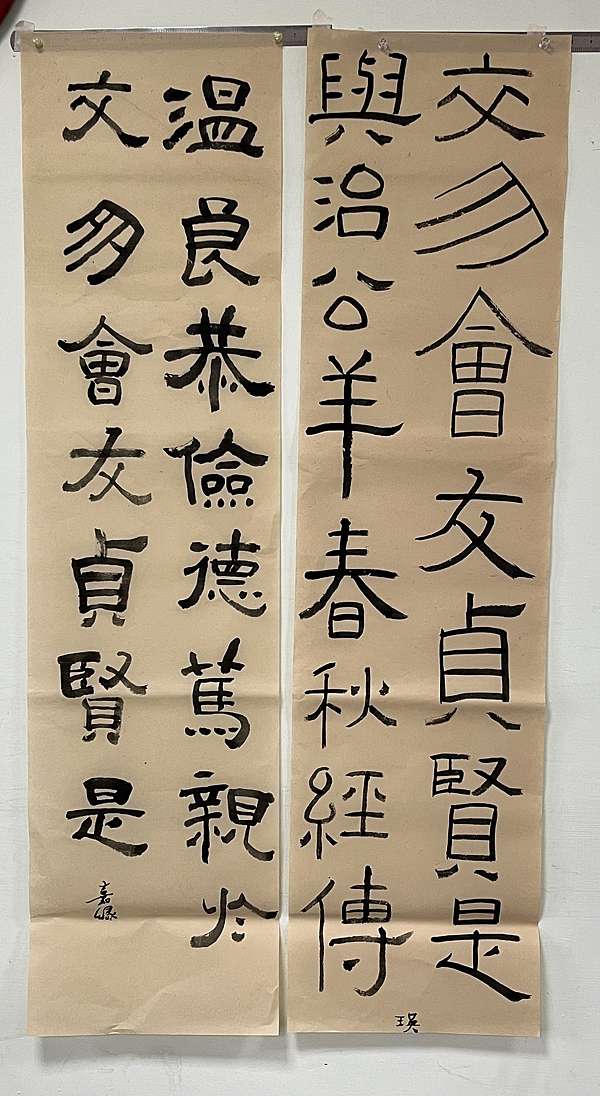 交勿會友貞賢是
與治公羊春秋經傳
瑛
溫良恭儉德篤親於
交勿會友貞賢是
嘉